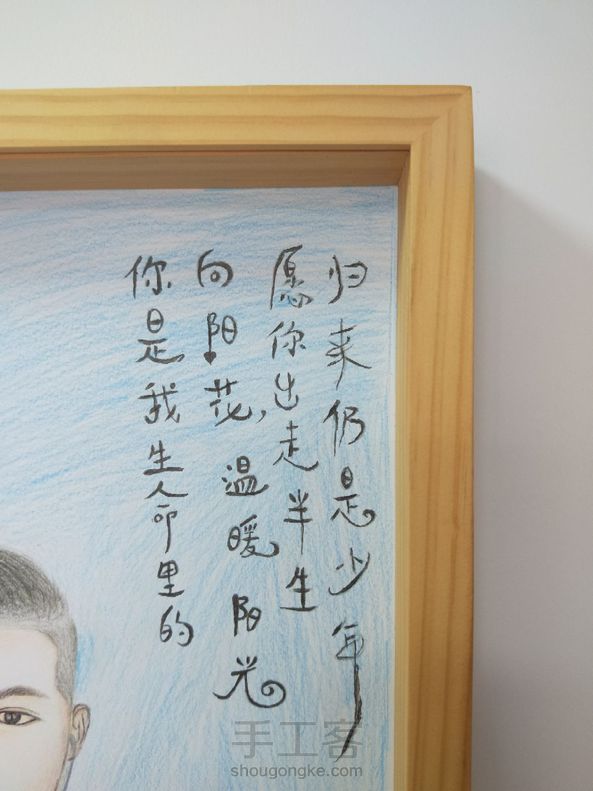 你是我生命里的
向阳花,温暖阳光
愿你出走半生
归来仍是少年
手工客
shougongke.com